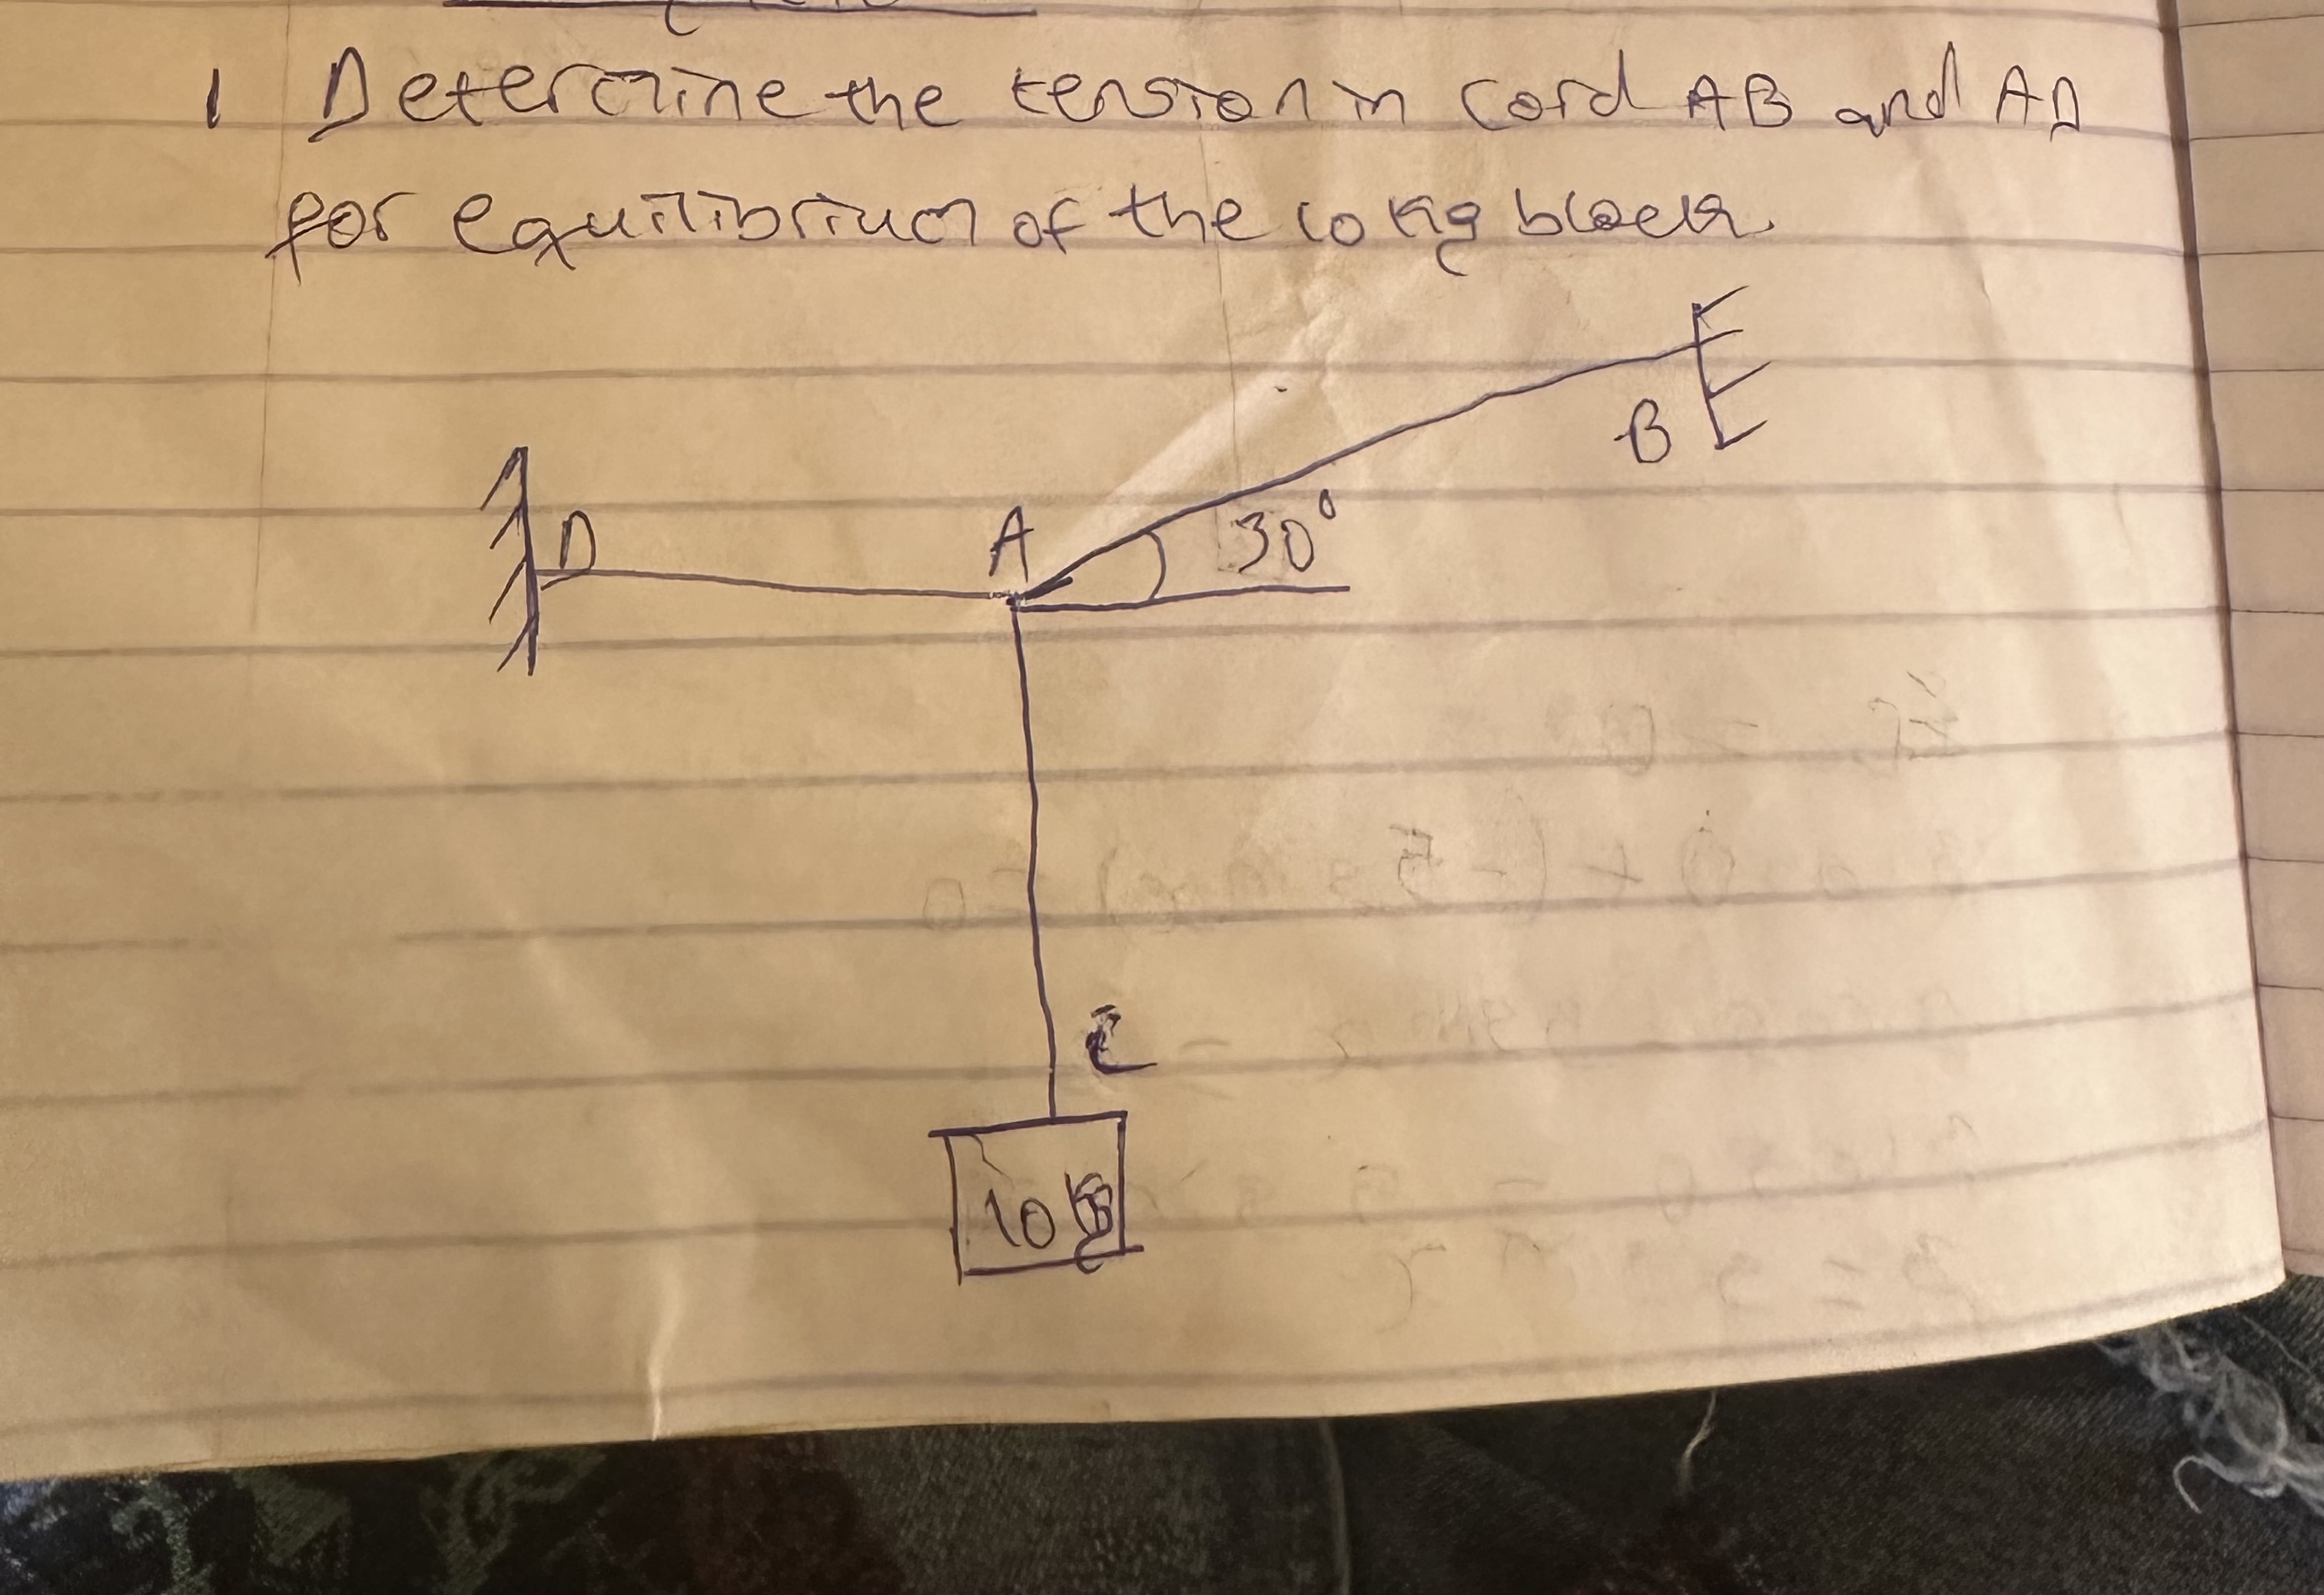 1 Determine the tension in cord AB and AD
for equilibrium of the 10 kg block.
B
D
A
30°
C
10 kg